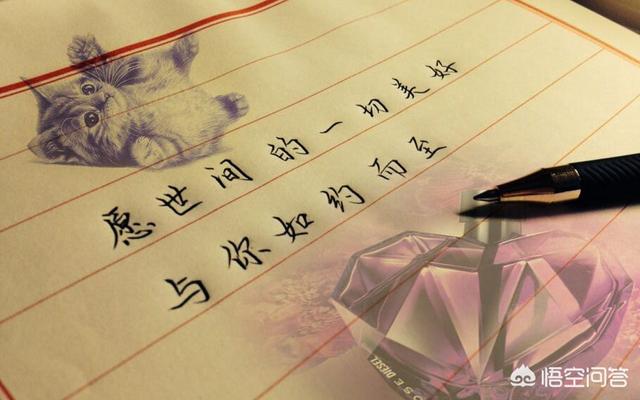 愿世间的一切美好
与你如约而至
DIESEL
悟空问答